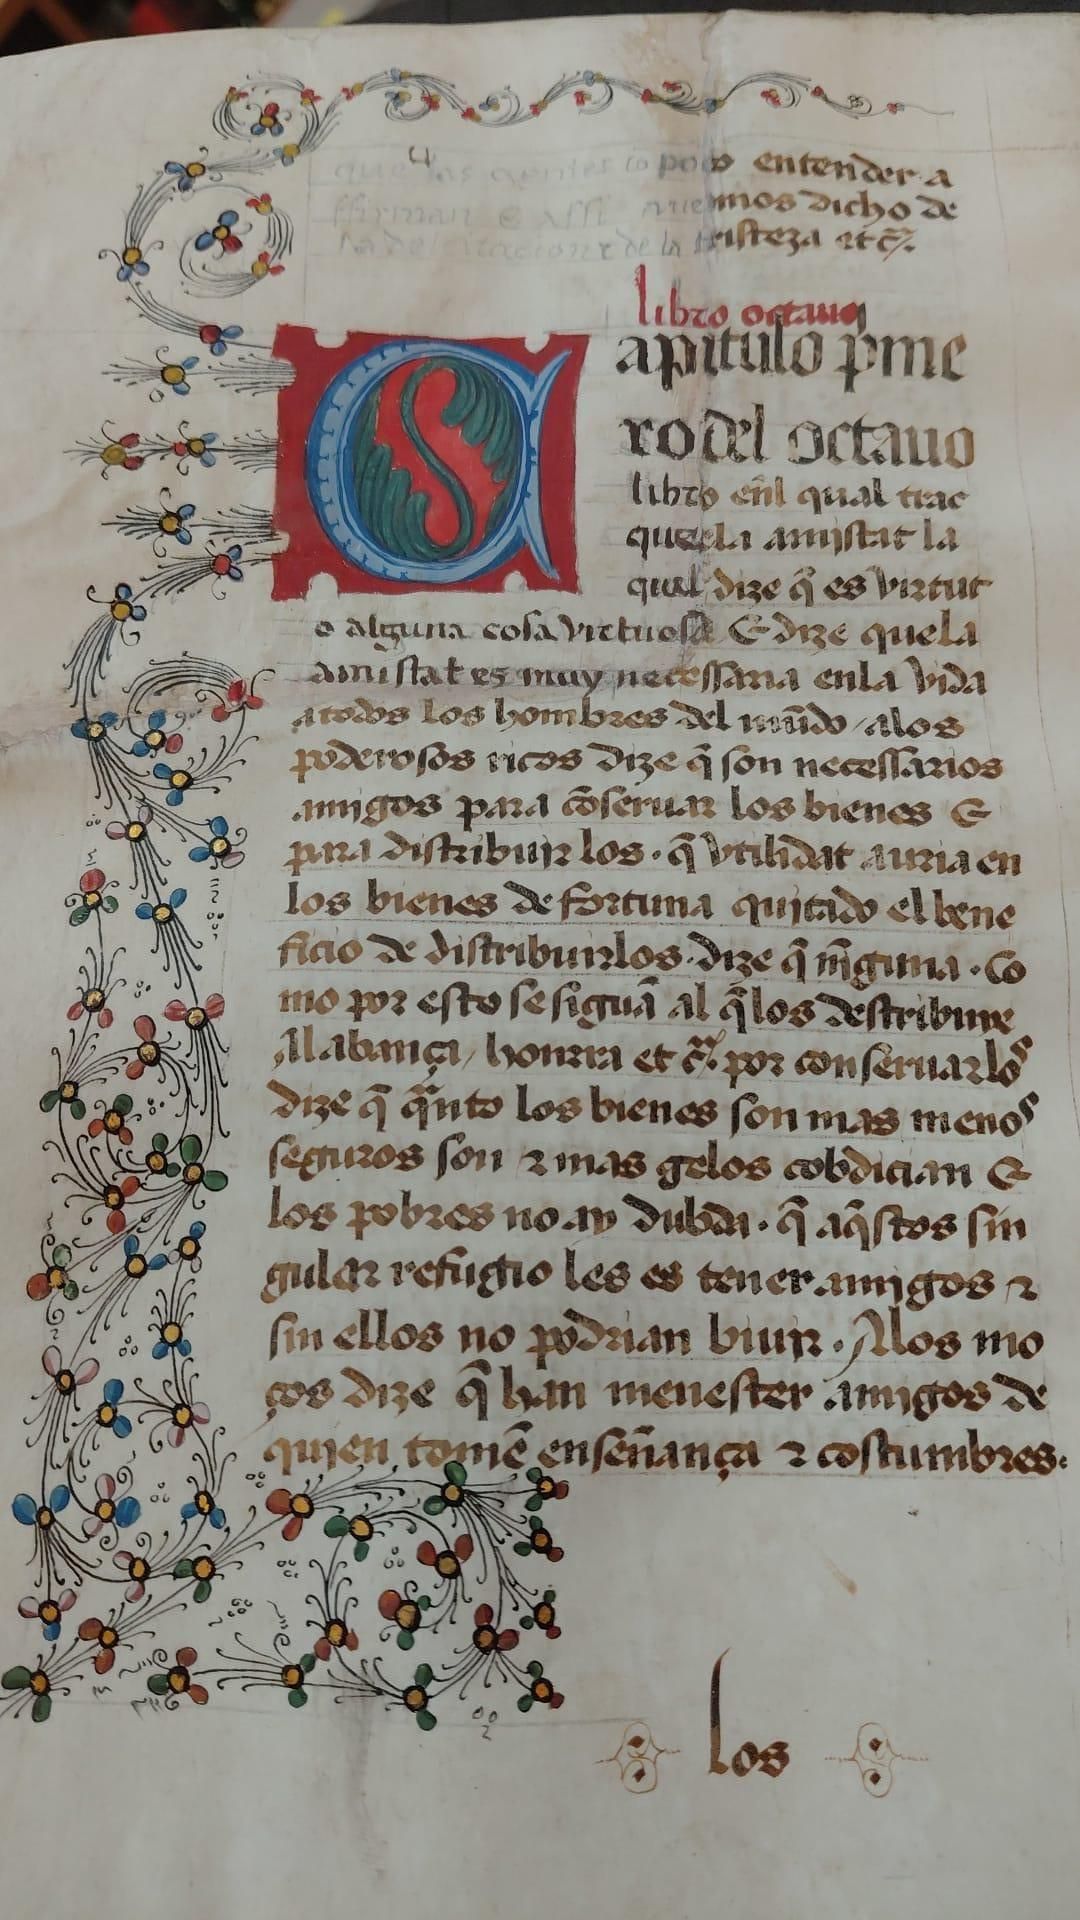 que las gentes co poco entender a
ffirman E assi mos dicho de
de la tristeza etc̃.
libro octauo
Capitulo p̃me
ro del octauo
libro eñl qual trac
que la amistat la
qual dize q̃ es virtut
o alguna cosa virtuosa E dize que la
amistat es muy necessaria en la vida
a todos los hombres del mũdo / a los
poderosos ricos dize q̃ son necessarios
amigos para cõseruar los bienes E
para distribuir los · q̃ vtilidat auria en
los bienes de fortuna quitado el bene
ficio de distribuirlos · dize q̃ nĩguna · Co
mo por esto se siguã al q̃ los destribuye
Alabança / honrra et c̃. por conseruarlos
dize q̃ q̃nto los bienes son mas menos
seguros son ⁊ mas gelos cobdician E
los pobres no ay dubda · q̃ aq̃stos sin
gular refugio les es tener amigos ⁊
sin ellos no podrian biuir · Alos mo
ços dize q̃ han menester amigos de
quien tomẽ enseñança ⁊ costumbres ·
los